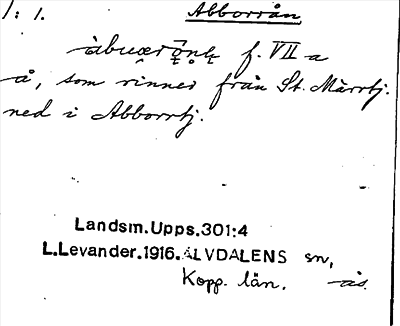 1: 1. Abborrån
f. VII a
å, som rinner från St. Märrtj.
ned i Abborrtj.
Landsm.Upps.301:4
L.Levander.1916.ÄLVDALENS sn,
Kopp. län. ås.